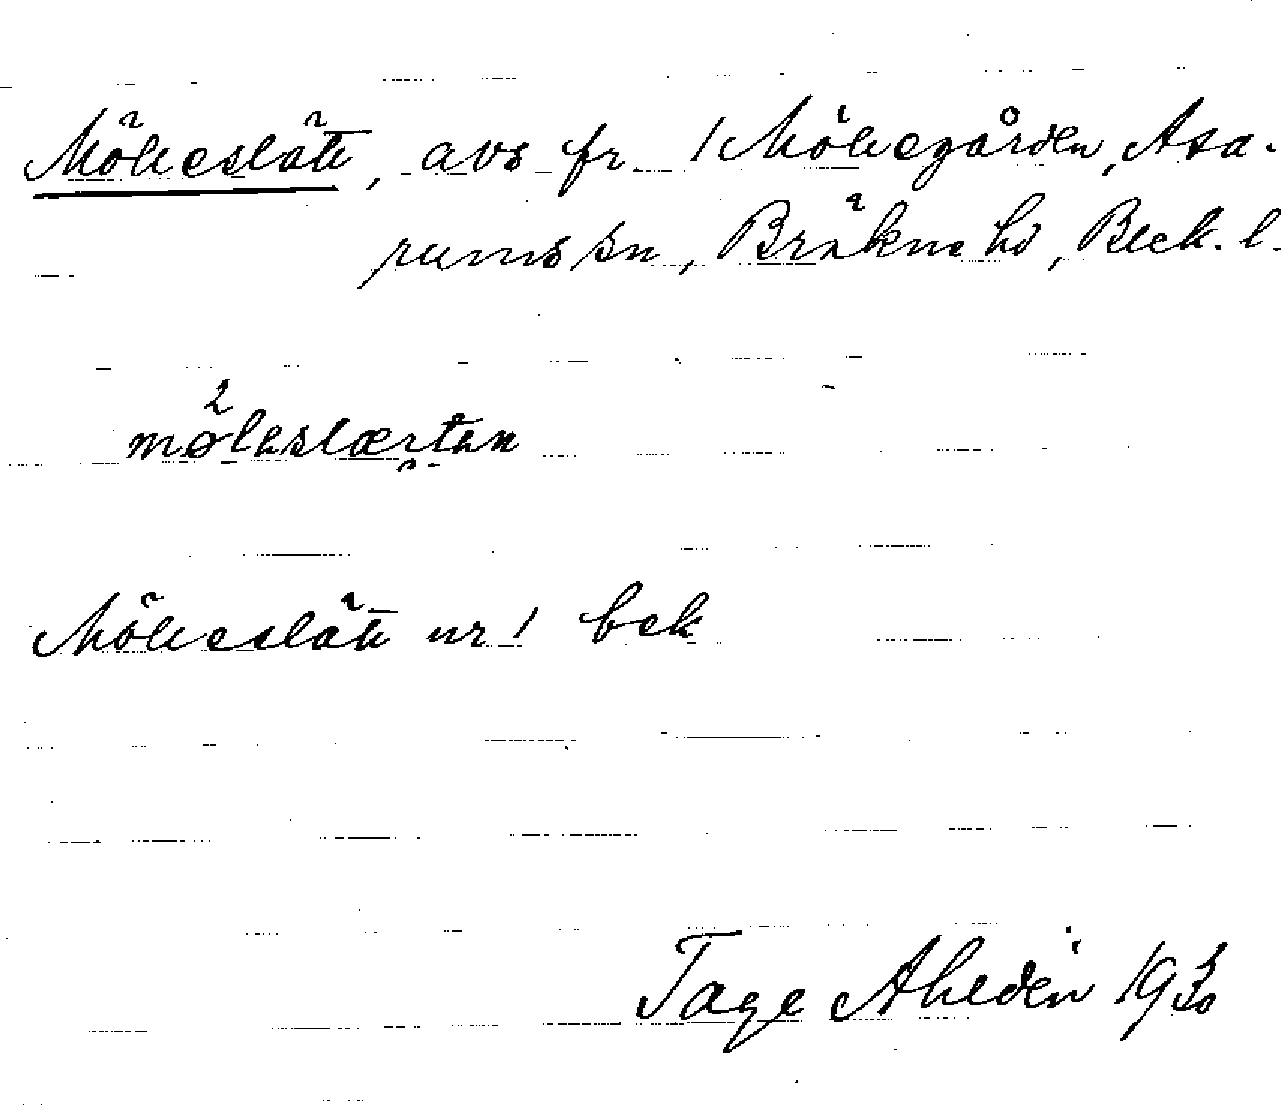 Mölleslätt, avs fr 1 Möllegården, Asa-
rums sn, Bräkne hd, Blek. l.
møleslætan
Mölleslätt nr 1 bek
Tage Ahldén 1930